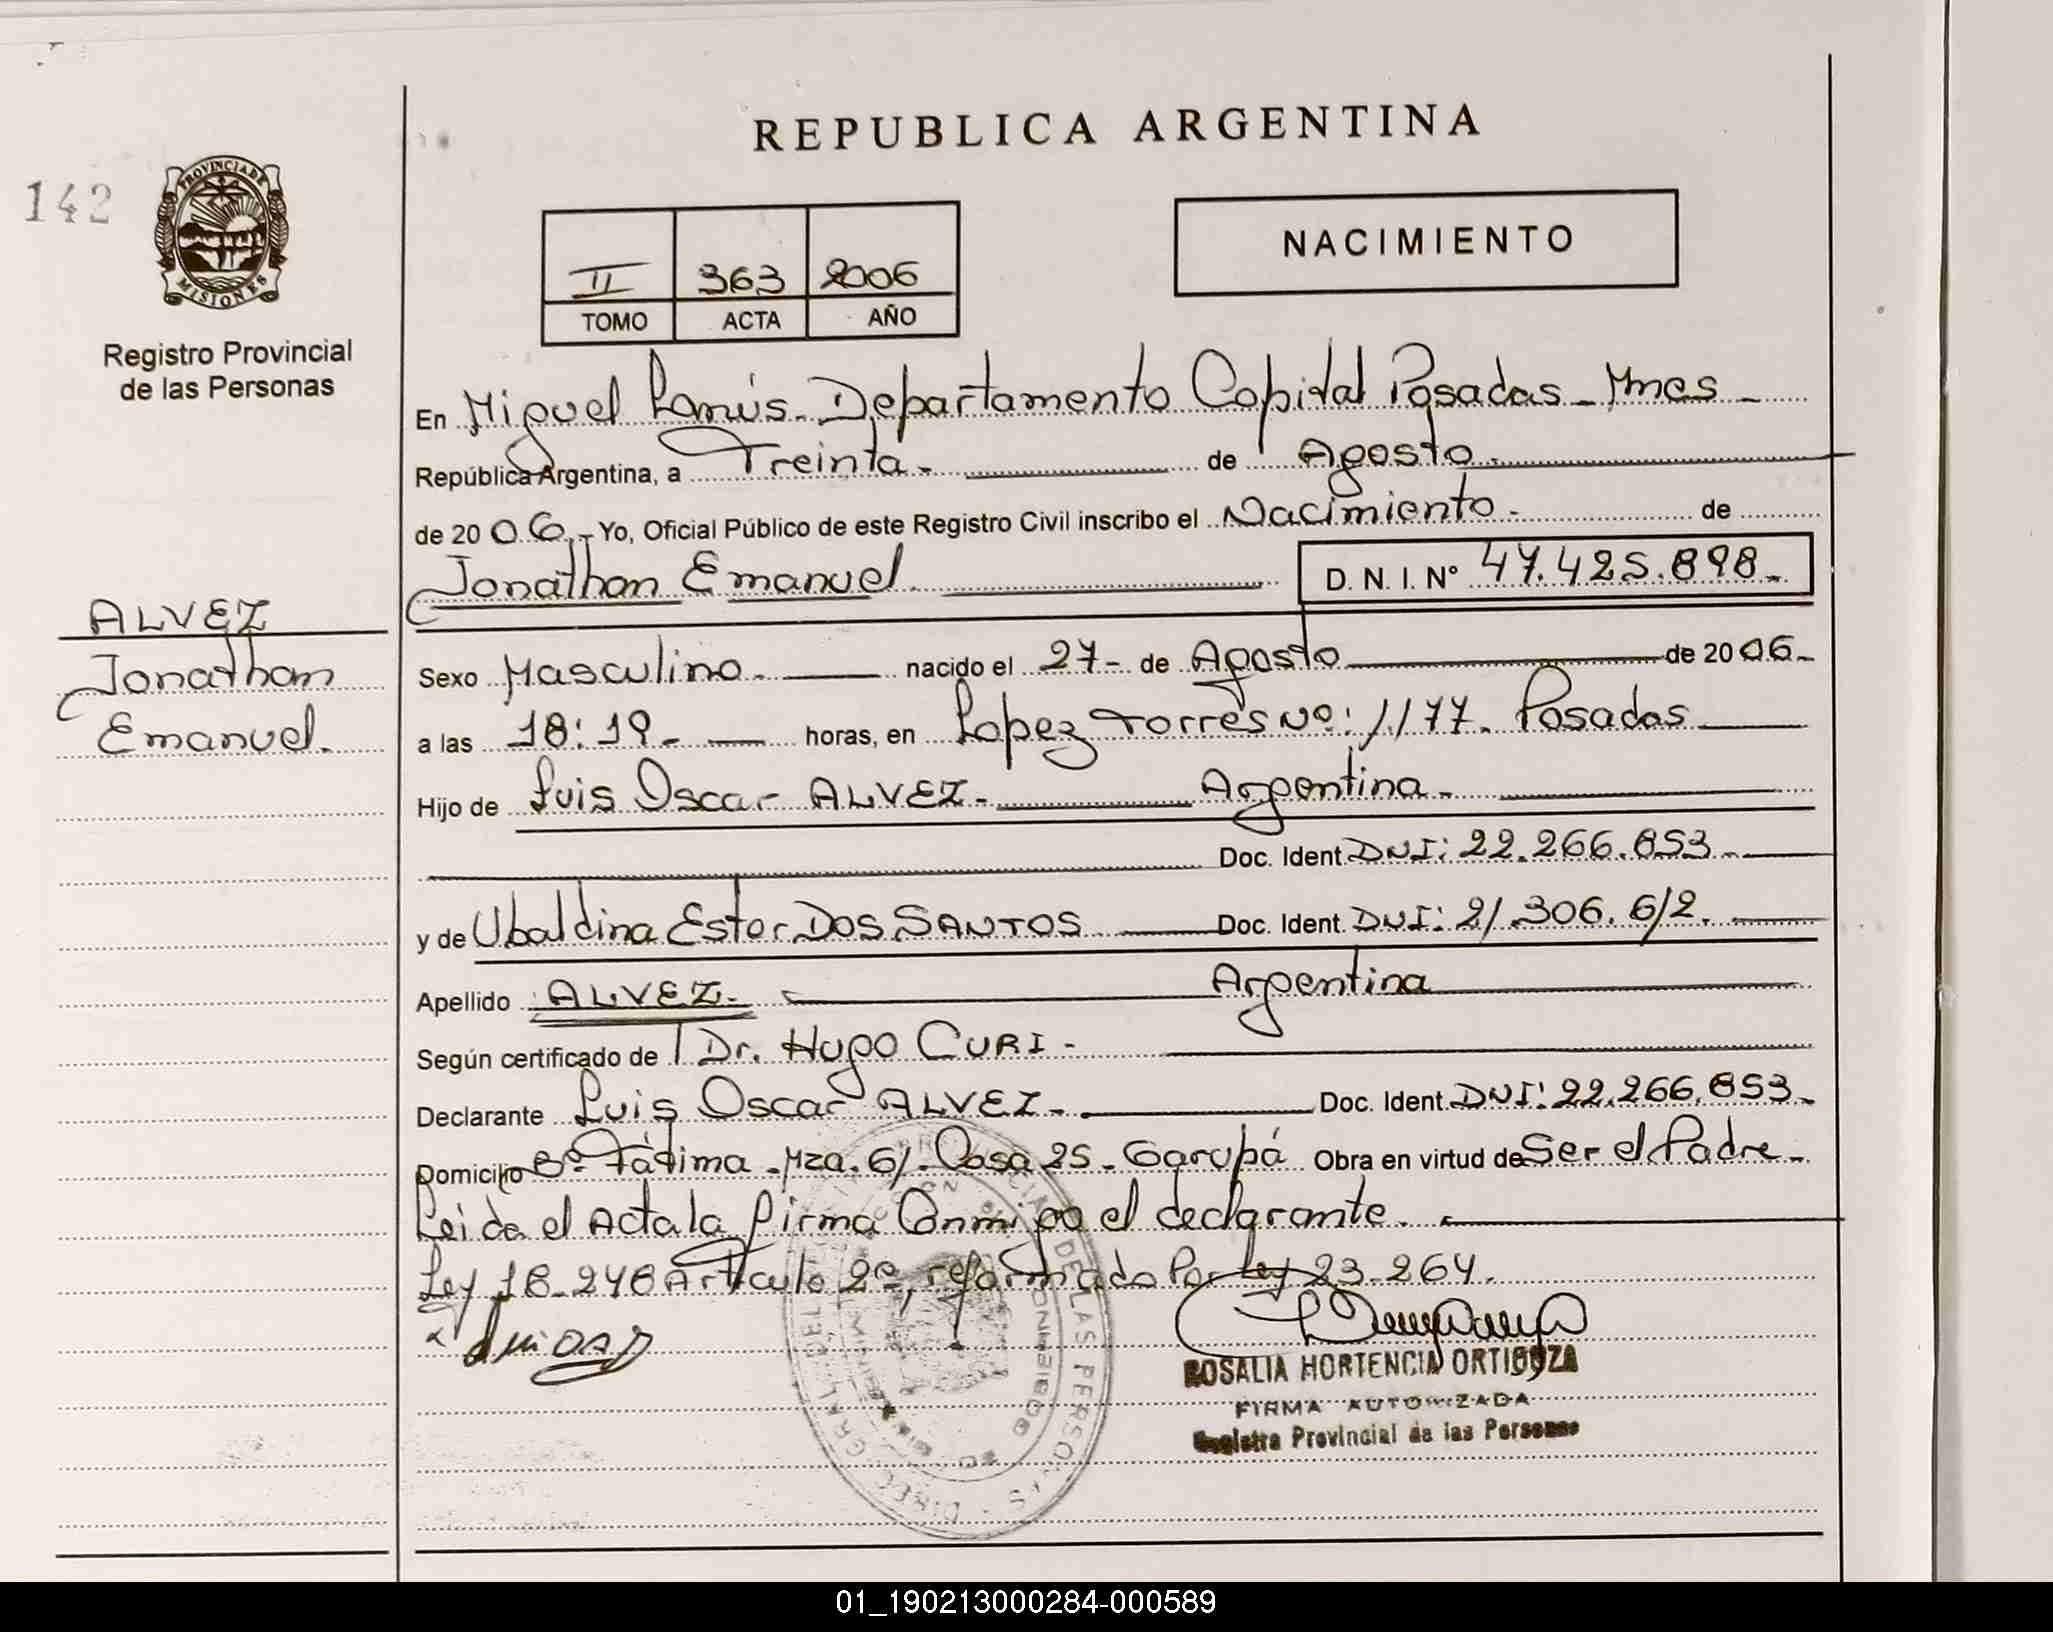 REPUBLICA ARGENTINA
142
PROVINCIA DE
MISIONES
Registro Provincial
de las Personas
II 363 2006
TOMO ACTA AÑO
NACIMIENTO
En Miguel Lanús - Departamento Capital Posadas - Mnes -
República Argentina, a Treinta - de Agosto -
de 2006 - Yo, Oficial Público de este Registro Civil inscribo el Nacimiento - de
Jonathan Emanuel D. N. I. Nº 47.425.898 -
ALVEZ
Jonathan
Emanuel.
Sexo Masculino - nacido el 27 - de Agosto de 2006 -
a las 18:19 - horas, en Lopez Torres Nº: 1177. Posadas
Hijo de Luis Oscar ALVEZ - Argentina -
Doc. Ident. DNI: 22.266.853 -
y de Ubaldina Ester DOS SANTOS Doc. Ident. DNI: 21.306.612.
Apellido ALVEZ - Argentina
Según certificado de Dr. Hugo CURI -
Declarante Luis Oscar ALVEZ - Doc. Ident. DNI: 22.266.853 -
Domicilio Bº Fátima - Mza. 61. Casa 25 - Garupá Obra en virtud de Ser el Padre -
Leida el Acta la firma Conmigo el declarante.
Ley 18.248 Artículo 2º, reformado Por Ley 23.264.
ROSALIA HORTENCIA ORTIGOZA
FIRMA AUTORIZADA
Registro Provincial de las Personas
01_190213000284-000589